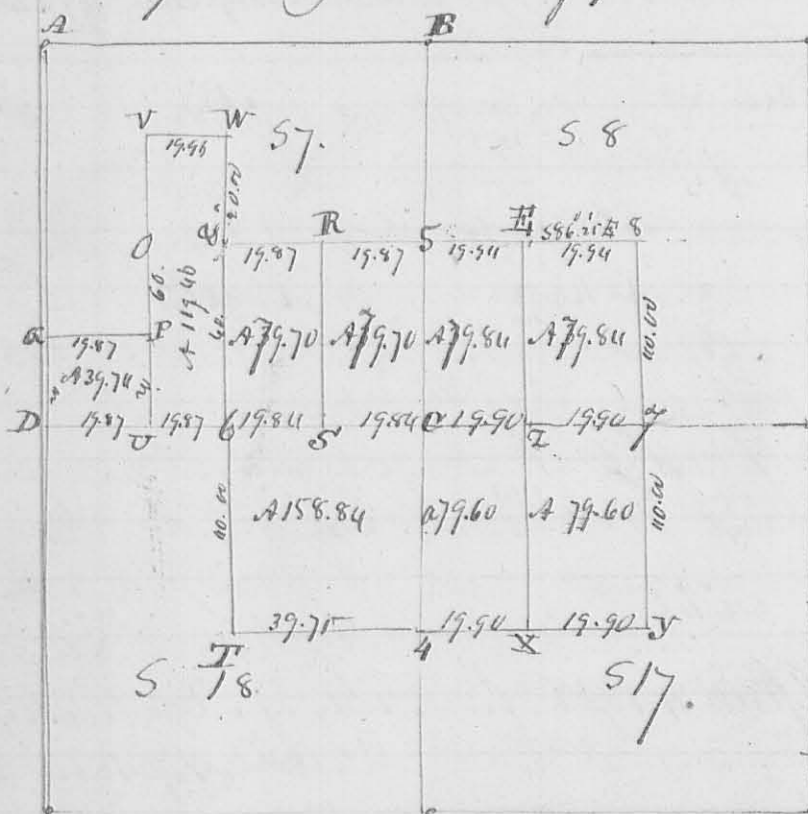 A B
V W
19.96
S 7. S. 8
20.00
R 5 E S 86. 8
O 19.87 19.87 19.94 19.94
60.
A 119 46
40.
G 19.87 P
A 79.70 A 79.70 A 79.84 A 79.84
40.00
A 39.74
D 19.87 U 19.87 6 19.84 S 19.84 C 19.90 Z 19.90 7
40.00 A 158.84 a 79.60 A 79.60 40.00
39.75 19.90 19.90 Y
T 4 X
S 18. S 17.